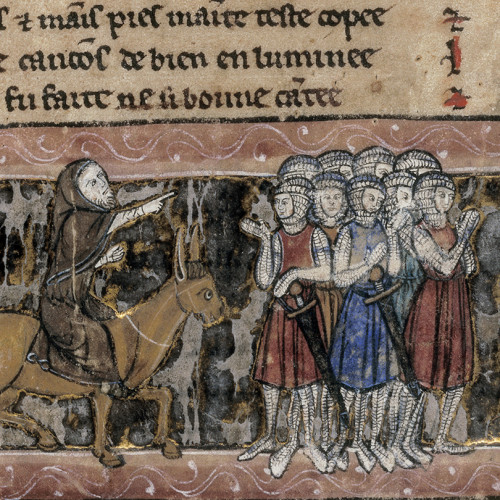 s ⁊ mais̄ pies maite teste copee
e cancōs de bien enluminee
fu faite ne si bonne cātee